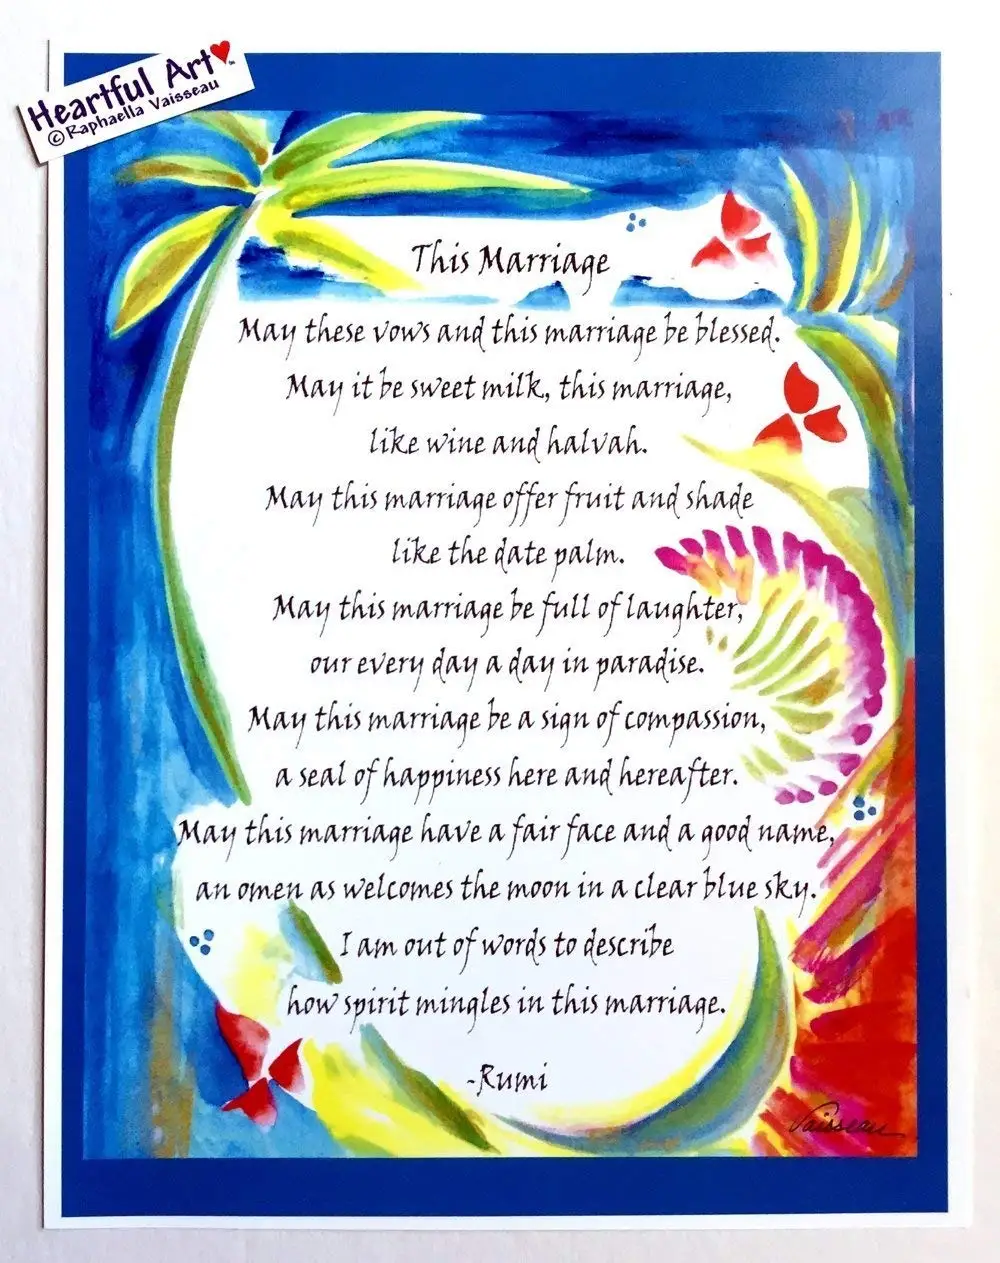 Heartful Art™
© Raphaella Vaisseau
This Marriage
May these vows and this marriage be blessed.
May it be sweet milk, this marriage,
like wine and halvah.
May this marriage offer fruit and shade
like the date palm.
May this marriage be full of laughter,
our every day a day in paradise.
May this marriage be a sign of compassion,
a seal of happiness here and hereafter.
May this marriage have a fair face and a good name,
an omen as welcomes the moon in a clear blue sky.
I am out of words to describe
how spirit mingles in this marriage.
-Rumi
Vaisseau